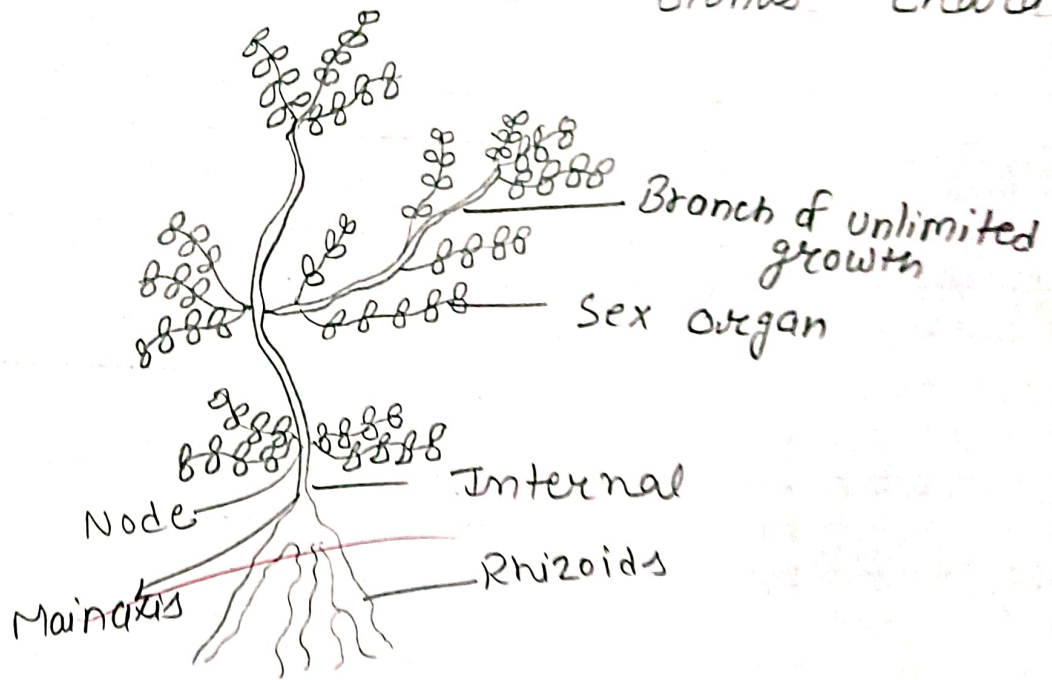 Branch of unlimited
growth
Sex organ
Internal
Node
Rhizoids
Mainaxis